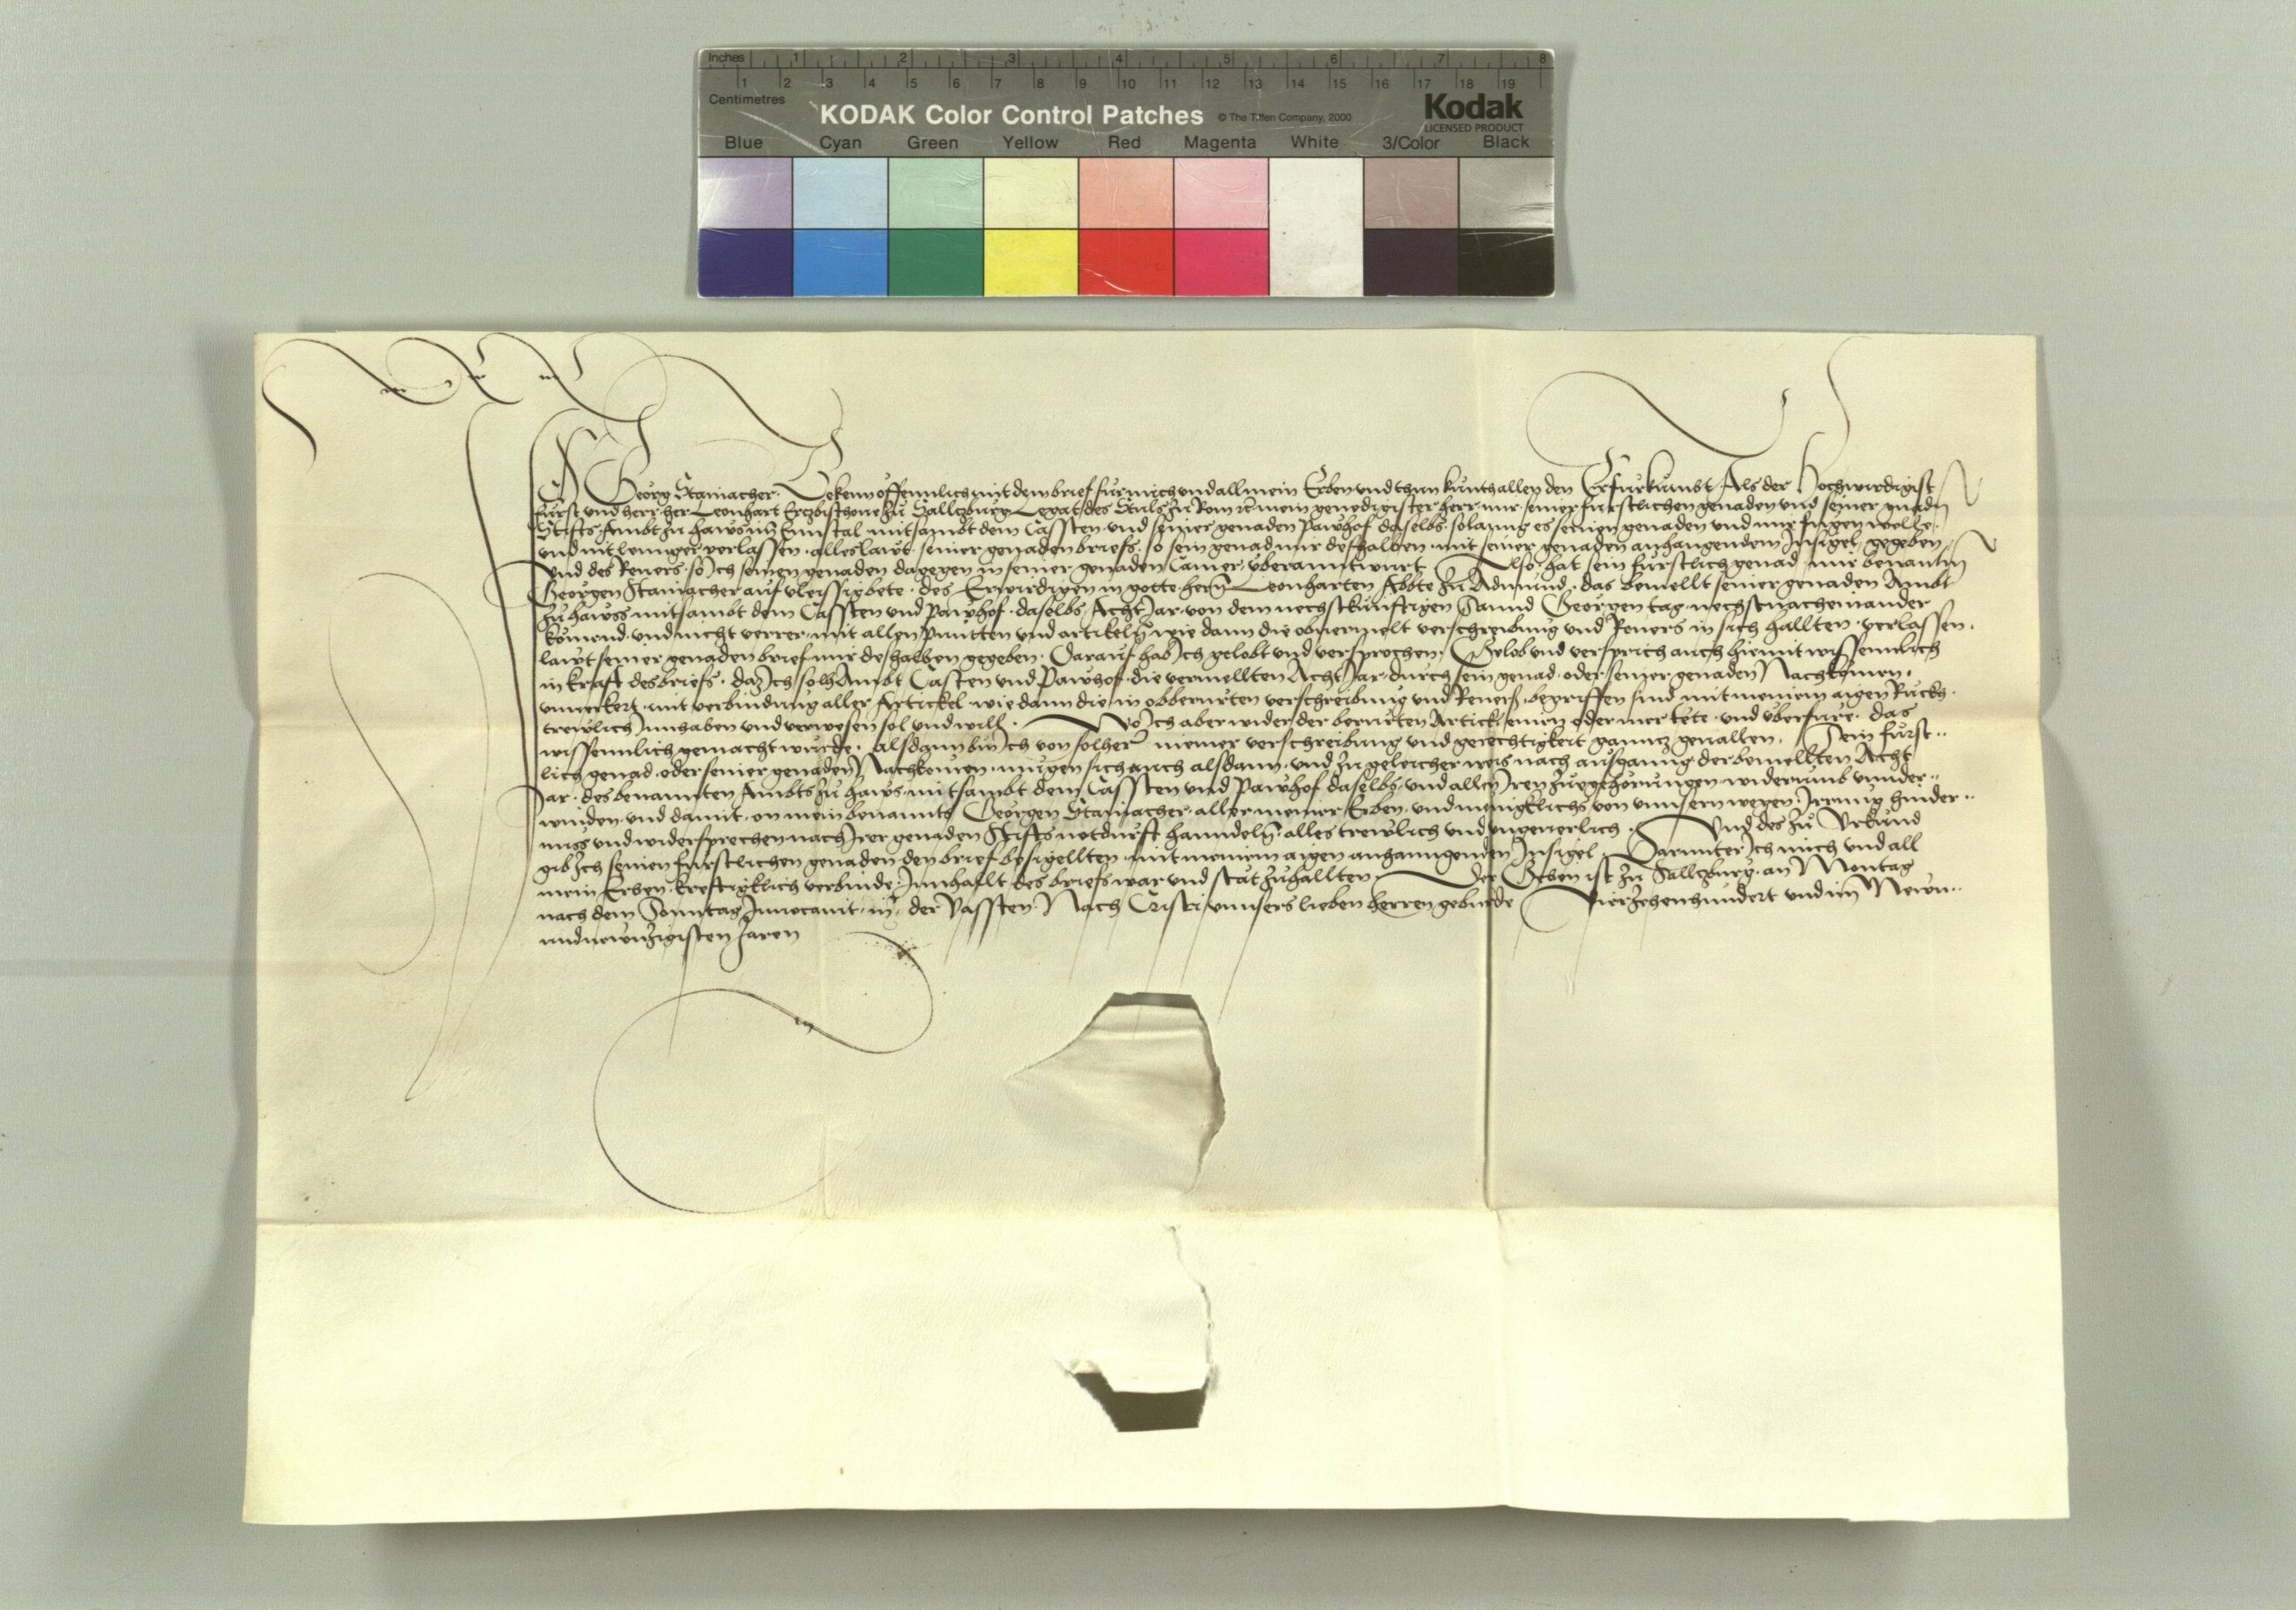 Inches 1 2 3 4 5 6 7 8
1 2 3 4 5 6 7 8 9 10 11 12 13 14 15 16 17 18 19
Centimetres
KODAK Color Control Patches © The Tiffen Company, 2000 Kodak
LICENSED PRODUCT
Blue Cyan Green Yellow Red Magenta White 3/Color Black
Ich Georg Stainacher. Bekenn offennlich mit dem brief fur mich und all mein Erben und thun kunth allen den Erfurkumbt Als der Hochwirdigist
furst und herr her Leonhart Erczbischove zu Salltzburg Legat des Stuls zu Rom mein genedigister herr mir seiner furstlichen genaden und seiner gnaden
Stiffts Ambt zu haws im Ennstal mitsambt dem Cassten und seiner genaden pawhof daselbs. solanng es seinen genaden und mir fugen wolle.
und nit lennger verlassen. alles lawt seiner genaden briefs. so sein genad mir deshalben mit seiner genaden anhangendem Insigel gegeben
Und des Revers so Ich seinen genaden dagegen in seiner genaden Camer uberanntwurt Also hat sein furstlich genad mir benantn
Georgen Stainacher auf vleissig bete. des Erwirdigen in gotte hern Leonharten Abbte zu Admund. das bemellt seiner genaden Ambt
zu hawss mitsambt dem Cassten und pawhof. daselbs Acht Jar von dem nechstkunftigen Sannd Georgen tag nechstnacheinander
komend. und nicht verrer mit allen puntten und artikeln wie dann die obvermelt verschreibung und Revers in sich hallten. verlassen.
lawt seiner genaden brief mir deshalben gegeben. Darauf hab Ich gelobt und versprochen. Gelob und versprich auch hiemit wissenntlich
in kraft des briefs. daz Ich solh Ambt Casten und Pawhof die vermellten Acht Jar durch sein genad. oder seiner genaden Nachkomen.
unverkert. mit verbindung aller Artickel wie dann die in obberurten verschreibung und Revers begriffen sind mit meinem aigen Rucks.
trewlich Innhaben und verwesen sol und will. Wo Ich aber wider der berurten Artickl einen oder mer tete. und uberfure. das
wissenntlich gemacht wurde. alsdann bin Ich von solher meiner verschreibung und gerechtigkeit ganntz gevallen. Sein furst..
lich genad. oder seiner genaden Nachkomen. mugen sich auch alsdann. und zu geleicher weis nach ausganng der bemellten Acht
Jar. des benannten Ambts zu haws. mitsambt dem Cassten und Pawhof daselbs. und allen Iren zuegehorungen widerumb unnder..
winden. und damit. on mein benannts Georgen Stainacher. aller meiner Erben. und menigklichs von unnsern wegen. Irrung hinder..
nuss und widersprechen nach Irer genaden Stifts notdurft hanndeln. alles trewlich und ungeverlich. Und des zu Urkund
gib Ich seinen furstlichen genaden den brief besigellten mit meinem aigen anhanngenden Insigel. Darunter Ich mich und all
mein Erben. krefftigklich verbinde. Innhallt des briefs war und stat zuhallten. Der Geben ist zu Salltzburg. an Montag
nach dem Sonntag Invocavit. in der Vassten. Nach Cristi unnsers lieben herren geburde Vierzehenhundert und im Newn..
undnewnzigisten Jaren